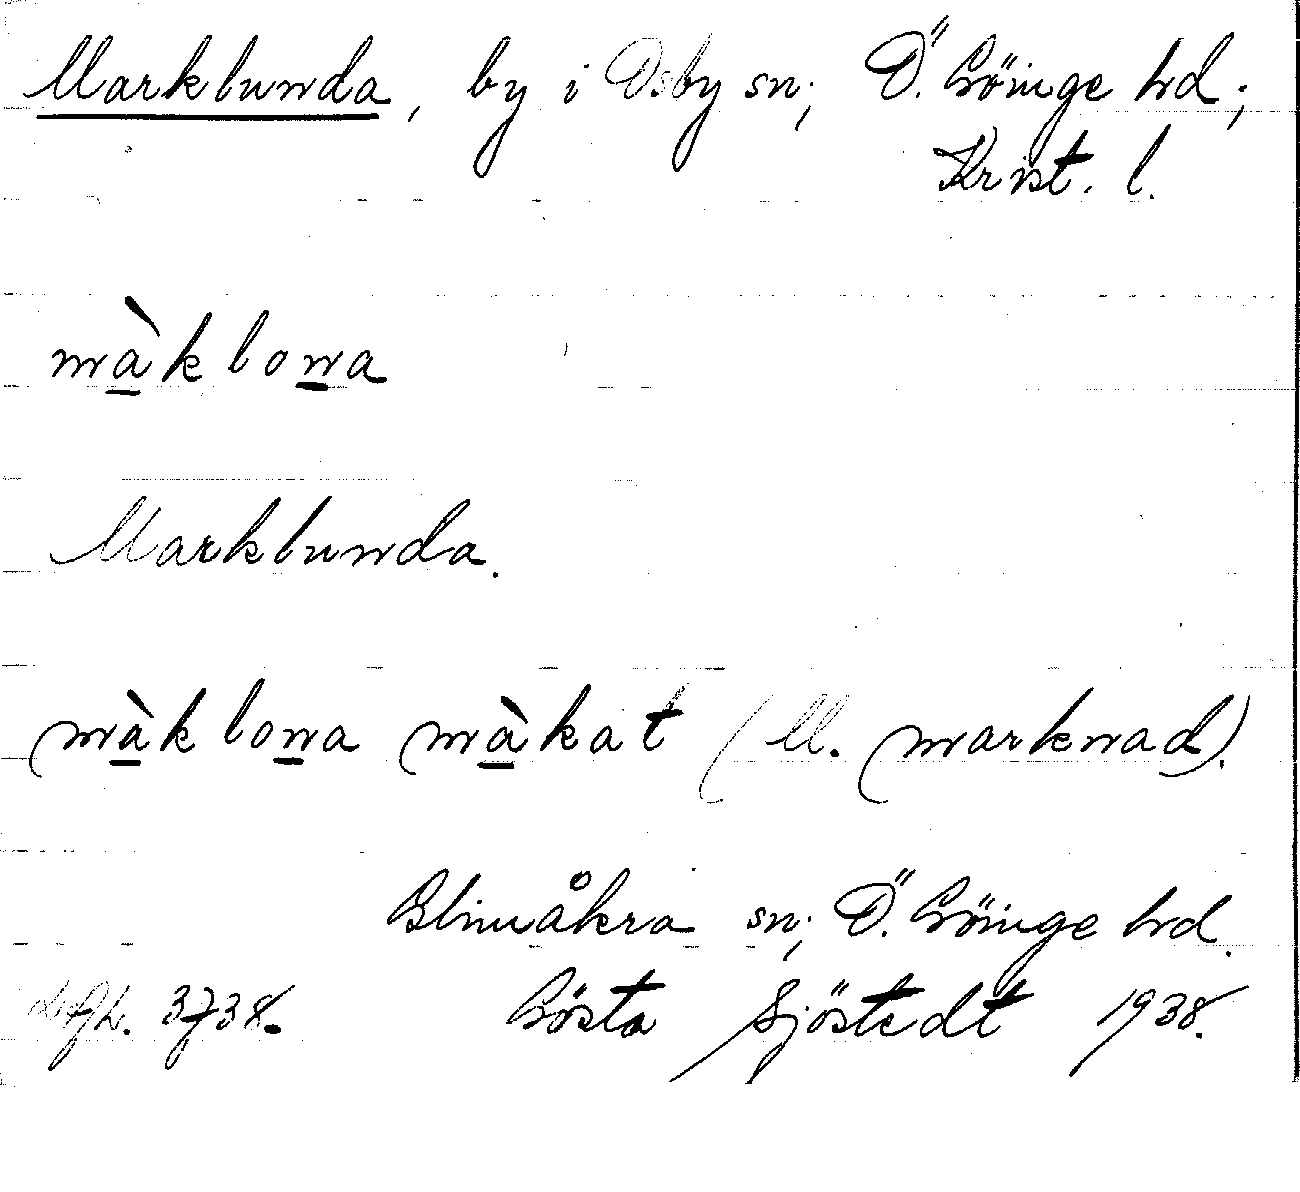 Marklunda, by i Osby sn; Ö. Göinge hd;
Krist. l.
màklona
Marklunda.
màklona màkat (M. marknad).
Glimåkra sn; Ö. Göinge hd.
3738. Gösta Sjöstedt 1938.